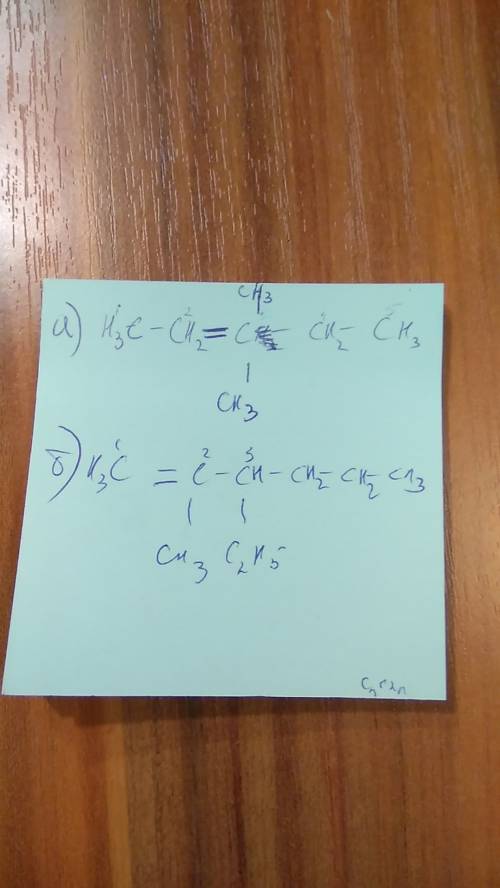 CH3
а) H3C - CH2 = C - CH2 - CH3
CH3
б) H3C = C - CH - CH2 - CH2 - CH3
CH3 C2H5